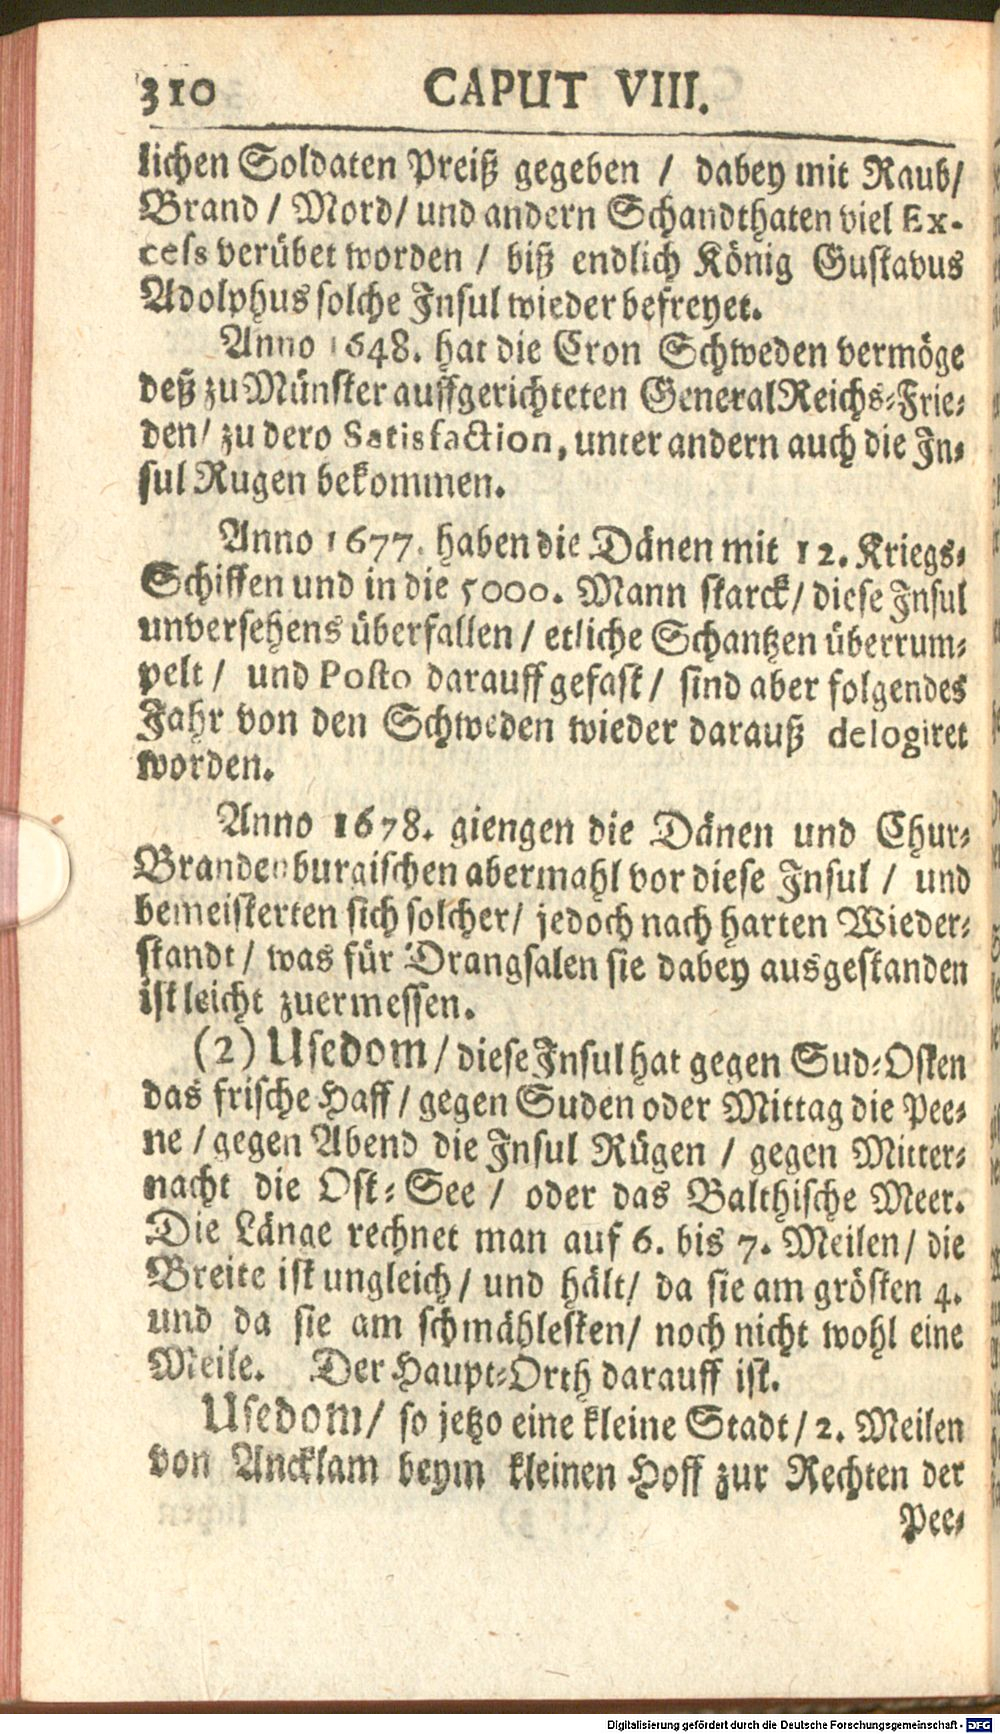 310 CAPUT VIII.
lichen Soldaten Preiß gegeben / dabey mit Raub/
Brand / Mord/ und andern Schandthaten viel Ex-
cess verübet worden / biß endlich König Gustavus
Adolphus solche Insul wieder befreyet.
Anno 1648. hat die Cron Schweden vermöge
deß zu Münster auffgerichteten General Reichs-Frie-
den/ zu dero Satisfaction, unter andern auch die In-
sul Rugen bekommen.
Anno 1677. haben die Dänen mit 12. Kriegs-
Schiffen und in die 5000. Mann starck/ diese Insul
unversehens überfallen / etliche Schantzen überrum-
pelt / und Posto darauff gefast / sind aber folgendes
Jahr von den Schweden wieder darauß delogiret
worden.
Anno 1678. giengen die Dänen und Chur-
Brandenburgischen abermahl vor diese Insul / und
bemeisterten sich solcher/ jedoch nach harten Wieder-
standt / was für Drangsalen sie dabey ausgestanden
ist leicht zuermessen.
(2) Usedom / diese Insul hat gegen Sud-Osten
das frische Haff / gegen Suden oder Mittag die Pee-
ne / gegen Abend die Insul Rügen / gegen Mitter-
nacht die Ost-See / oder das Balthische Meer.
Die Länge rechnet man auf 6. bis 7. Meilen/ die
Breite ist ungleich / und hält/ da sie am grösten 4.
und da sie am schmählesten/ noch nicht wohl eine
Meile. Der Haupt-Orth darauff ist.
Usedom/ so jetzo eine kleine Stadt / 2. Meilen
von Ancklam beym kleinen Hoff zur Rechten der
Pee-
Digitalisierung gefördert durch die Deutsche Forschungsgemeinschaft - DFG